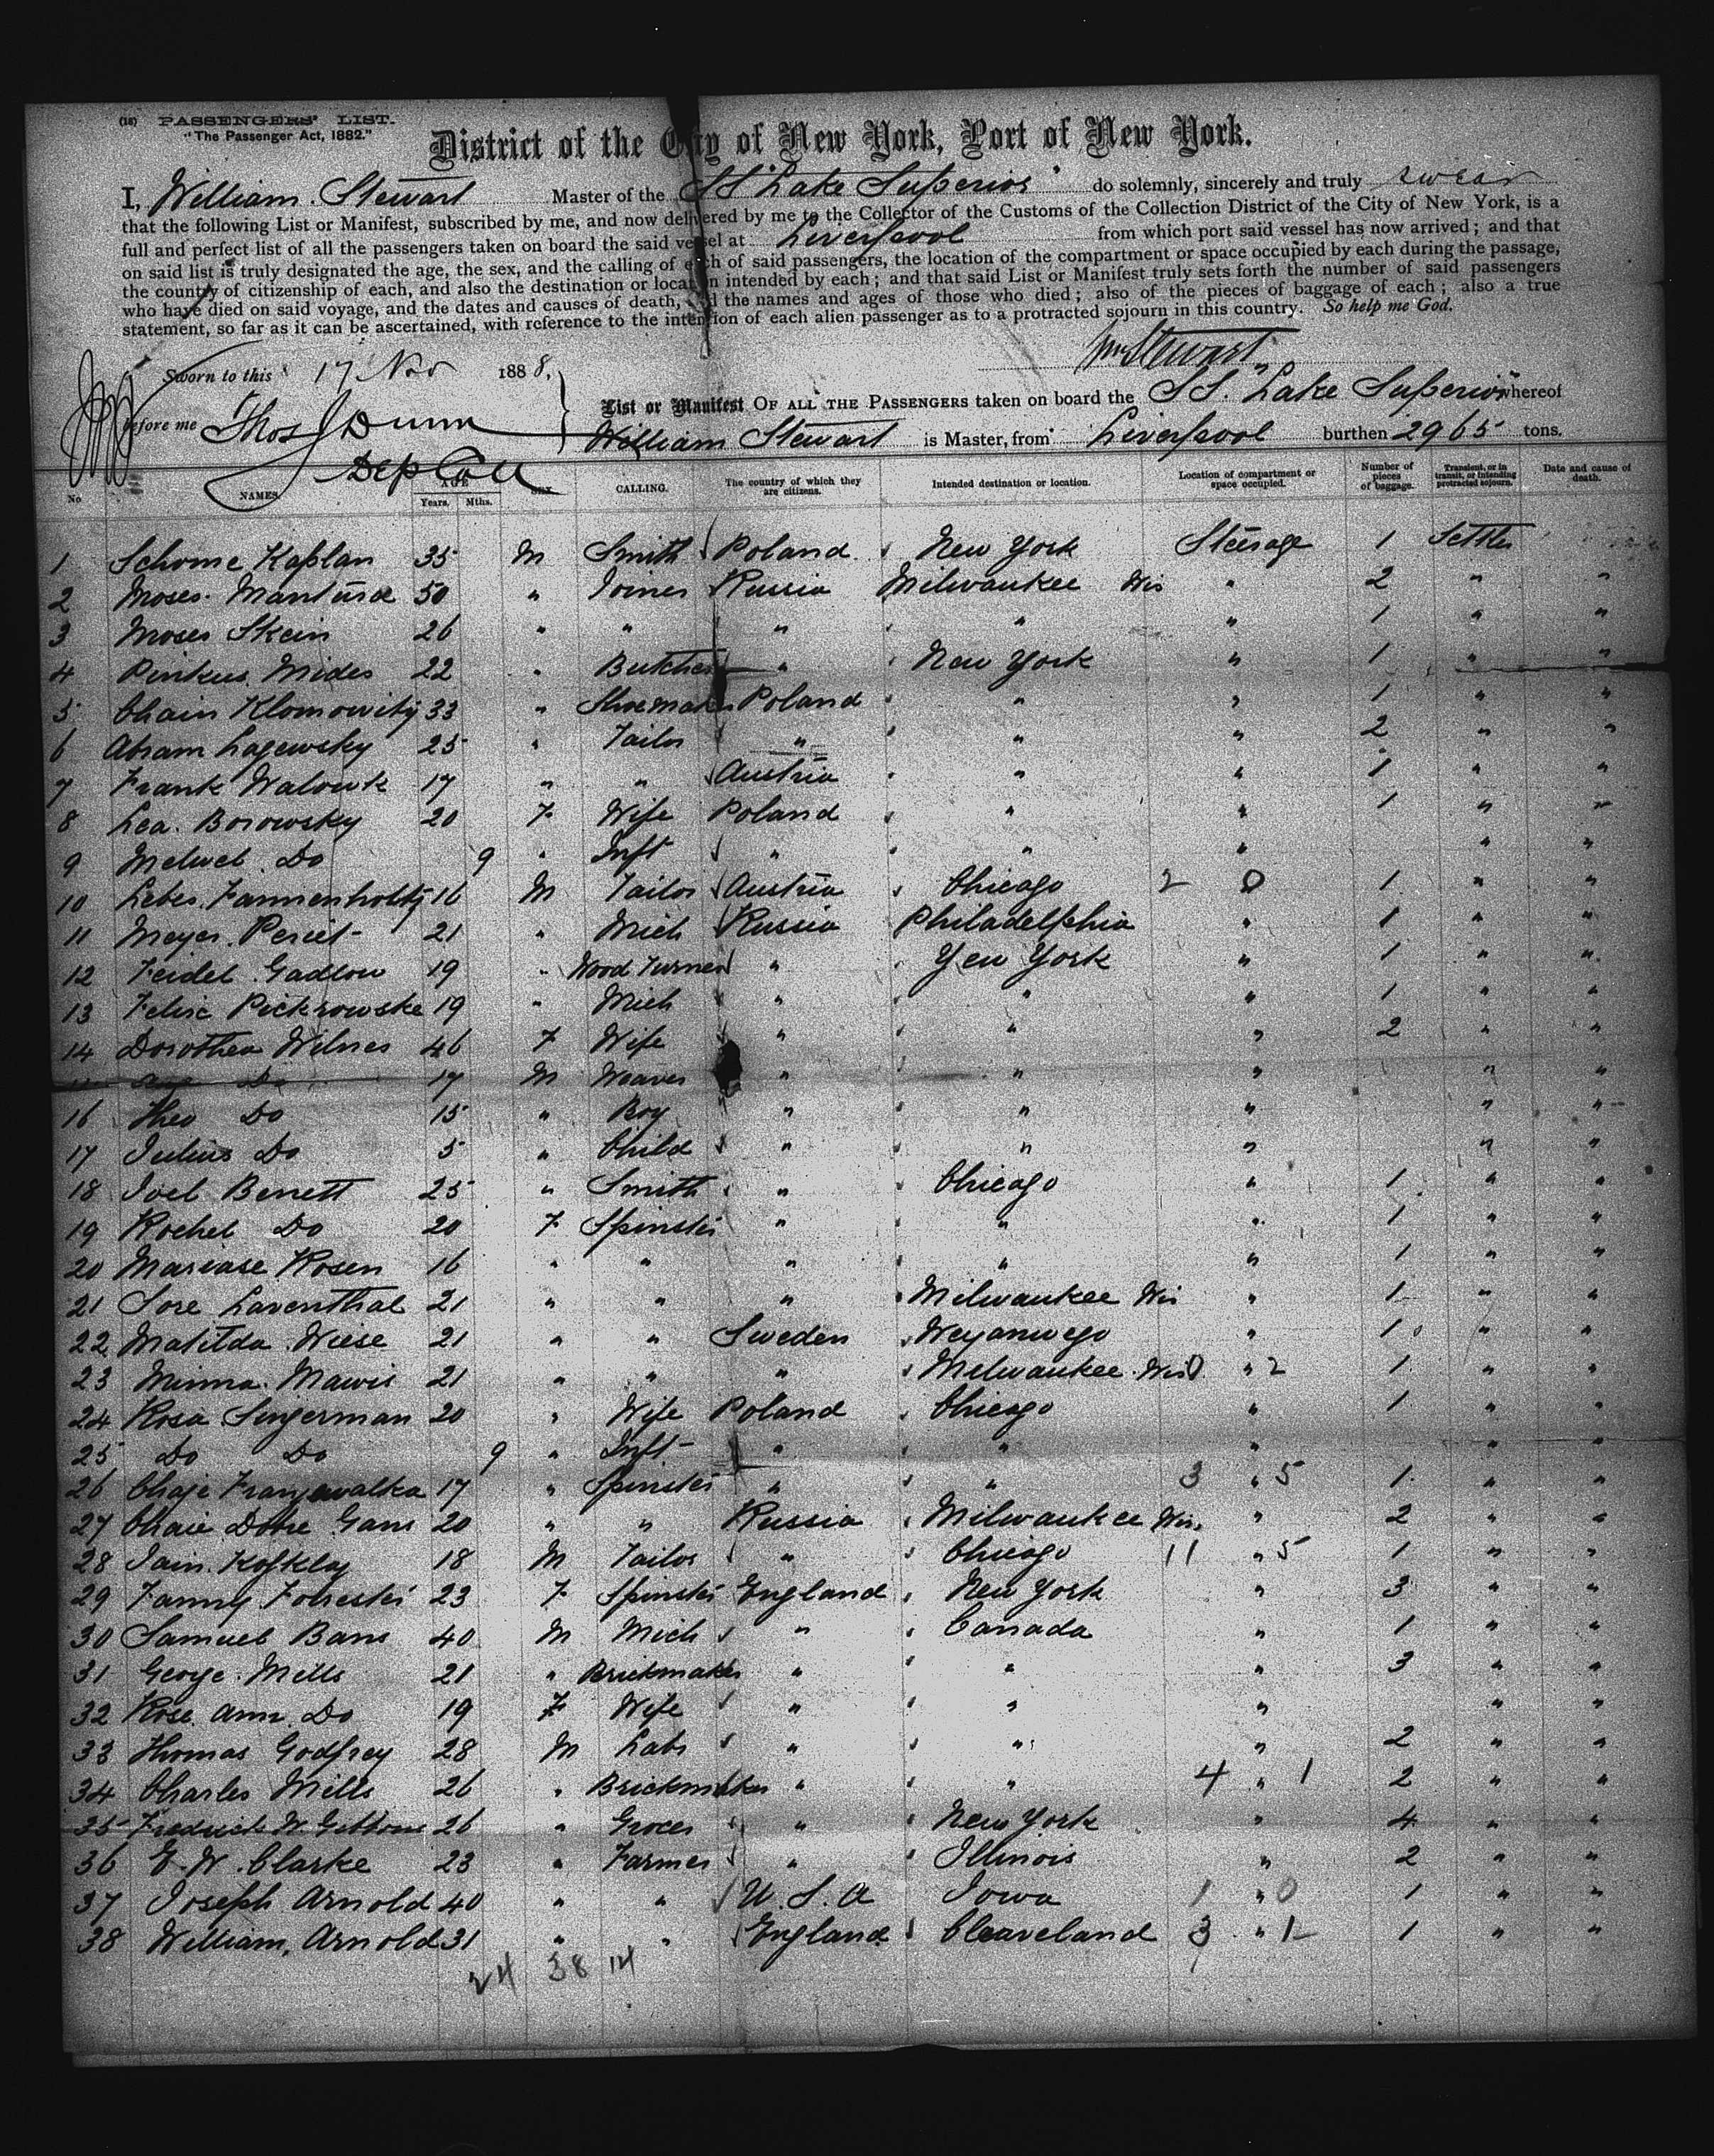 (18) PASSENGERS' LIST.
"The Passenger Act, 1882."
District of the City of New York, Port of New York.
I, William Stewart Master of the SS "Lake Superior" do solemnly, sincerely and truly swear
that the following List or Manifest, subscribed by me, and now delivered by me to the Collector of the Customs of the Collection District of the City of New York, is a
full and perfect list of all the passengers taken on board the said vessel at Liverpool from which port said vessel has now arrived; and that
on said list is truly designated the age, the sex, and the calling of each of said passengers, the location of the compartment or space occupied by each during the passage,
the country of citizenship of each, and also the destination or location intended by each; and that said List or Manifest truly sets forth the number of said passengers
who have died on said voyage, and the dates and causes of death, and the names and ages of those who died; also of the pieces of baggage of each; also a true
statement, so far as it can be ascertained, with reference to the intention of each alien passenger as to a protracted sojourn in this country. So help me God.
Wm Stewart
Sworn to this 17 Nov 1888,
before me Thos J Dunn
Dep Coll
List or Manifest OF ALL THE PASSENGERS taken on board the SS. Lake Superior whereof
William Stewart is Master, from Liverpool burthen 2965 tons.
No NAMES. AGE Years. Mths. SEX. CALLING. The country of which they are citizens. Intended destination or location. Location of compartment or space occupied. Number of pieces of baggage. Transient, or in transit, or intending protracted sojourn. Date and cause of death.
1 Schome Kaplan 35 M Smith Poland New York Steerage 1 Settler
2 Moses Manturd 50 " Joiner Russia Milwaukee Wis " 2 " "
3 Moses Skein 26 " " " " " 1 " "
4 Pinkus Mides 22 " Butcher " New York " 1 " "
5 Chain Klomowitz 33 " Shoemaker Poland " " 1 " "
6 Abram Lagewsky 25 " Tailor " " " 2 " "
7 Frank Walowk 17 " " Austria " " 1 " "
8 Lea Borowsky 20 F Wife Poland " " 1 " "
9 Melweb Do 9 " Inft " " " " "
10 Leber Fannenholtz 16 M Tailor Austria Chicago 2 0 1 " "
11 Meyer Periet 21 " Mich Russia Philadelphia " 1 " "
12 Feidel Gadlow 19 " Wood Turner " Yew York " 1 " "
13 Felix Pickrowske 19 " Mich " " " 1 " "
14 Dorothea Wilnes 46 F Wife " " " 2 " "
Do 17 M Weaver " " " " "
16 Theo Do 15 " Boy " " " " "
17 Julius Do 5 " Child " " " " "
18 Joel Benett 25 " Smith " Chicago " 1 " "
19 Rochel Do 20 F Spinster " " " 1 " "
20 Mariase Rosen 16 " " " " " 1 " "
21 Sore Laventhal 21 " " " Milwaukee Wis " 1 " "
22 Matilda Wiese 21 " " Sweden Weyanwego " 1 " "
23 Minna Mawis 21 " " " Milwaukee Wis 0 " 2 1 " "
24 Rosa Singerman 20 " Wife Poland Chicago " 1 " "
25 Do Do 9 " Inft " " " "
26 Chaje Franzewalka 17 " Spinster " " 3 " 5 1 " "
27 Chaie Dobre Gans 20 " " Russia Milwaukee Wis. " 2 " "
28 Jain Kofklaz 18 M Tailor " Chicago 11 " 5 1 " "
29 Fanny Forrester 23 F Spinster England New York " 3 " "
30 Samuel Bans 40 M Mich " Canada " 1 " "
31 George Mills 21 " Brickmaker " " " 3 " "
32 Rose Ann Do 19 F Wife " " " " "
33 Thomas Godfrey 28 M Labr " " " 2 " "
34 Charles Mills 26 " Brickmaker " " 4 " 1 2 " "
35 Fredrick W. Gibbons 26 " Grocer " New York " 4 " "
36 E. W. Clarke 23 " Farmer " Illinois " 2 " "
37 Joseph Arnold 40 " " U.S.A Iowa 1 " 0 1 " "
38 William Arnold 31 " " England Cleaveland 3 " 1 1 " "
24 38 14